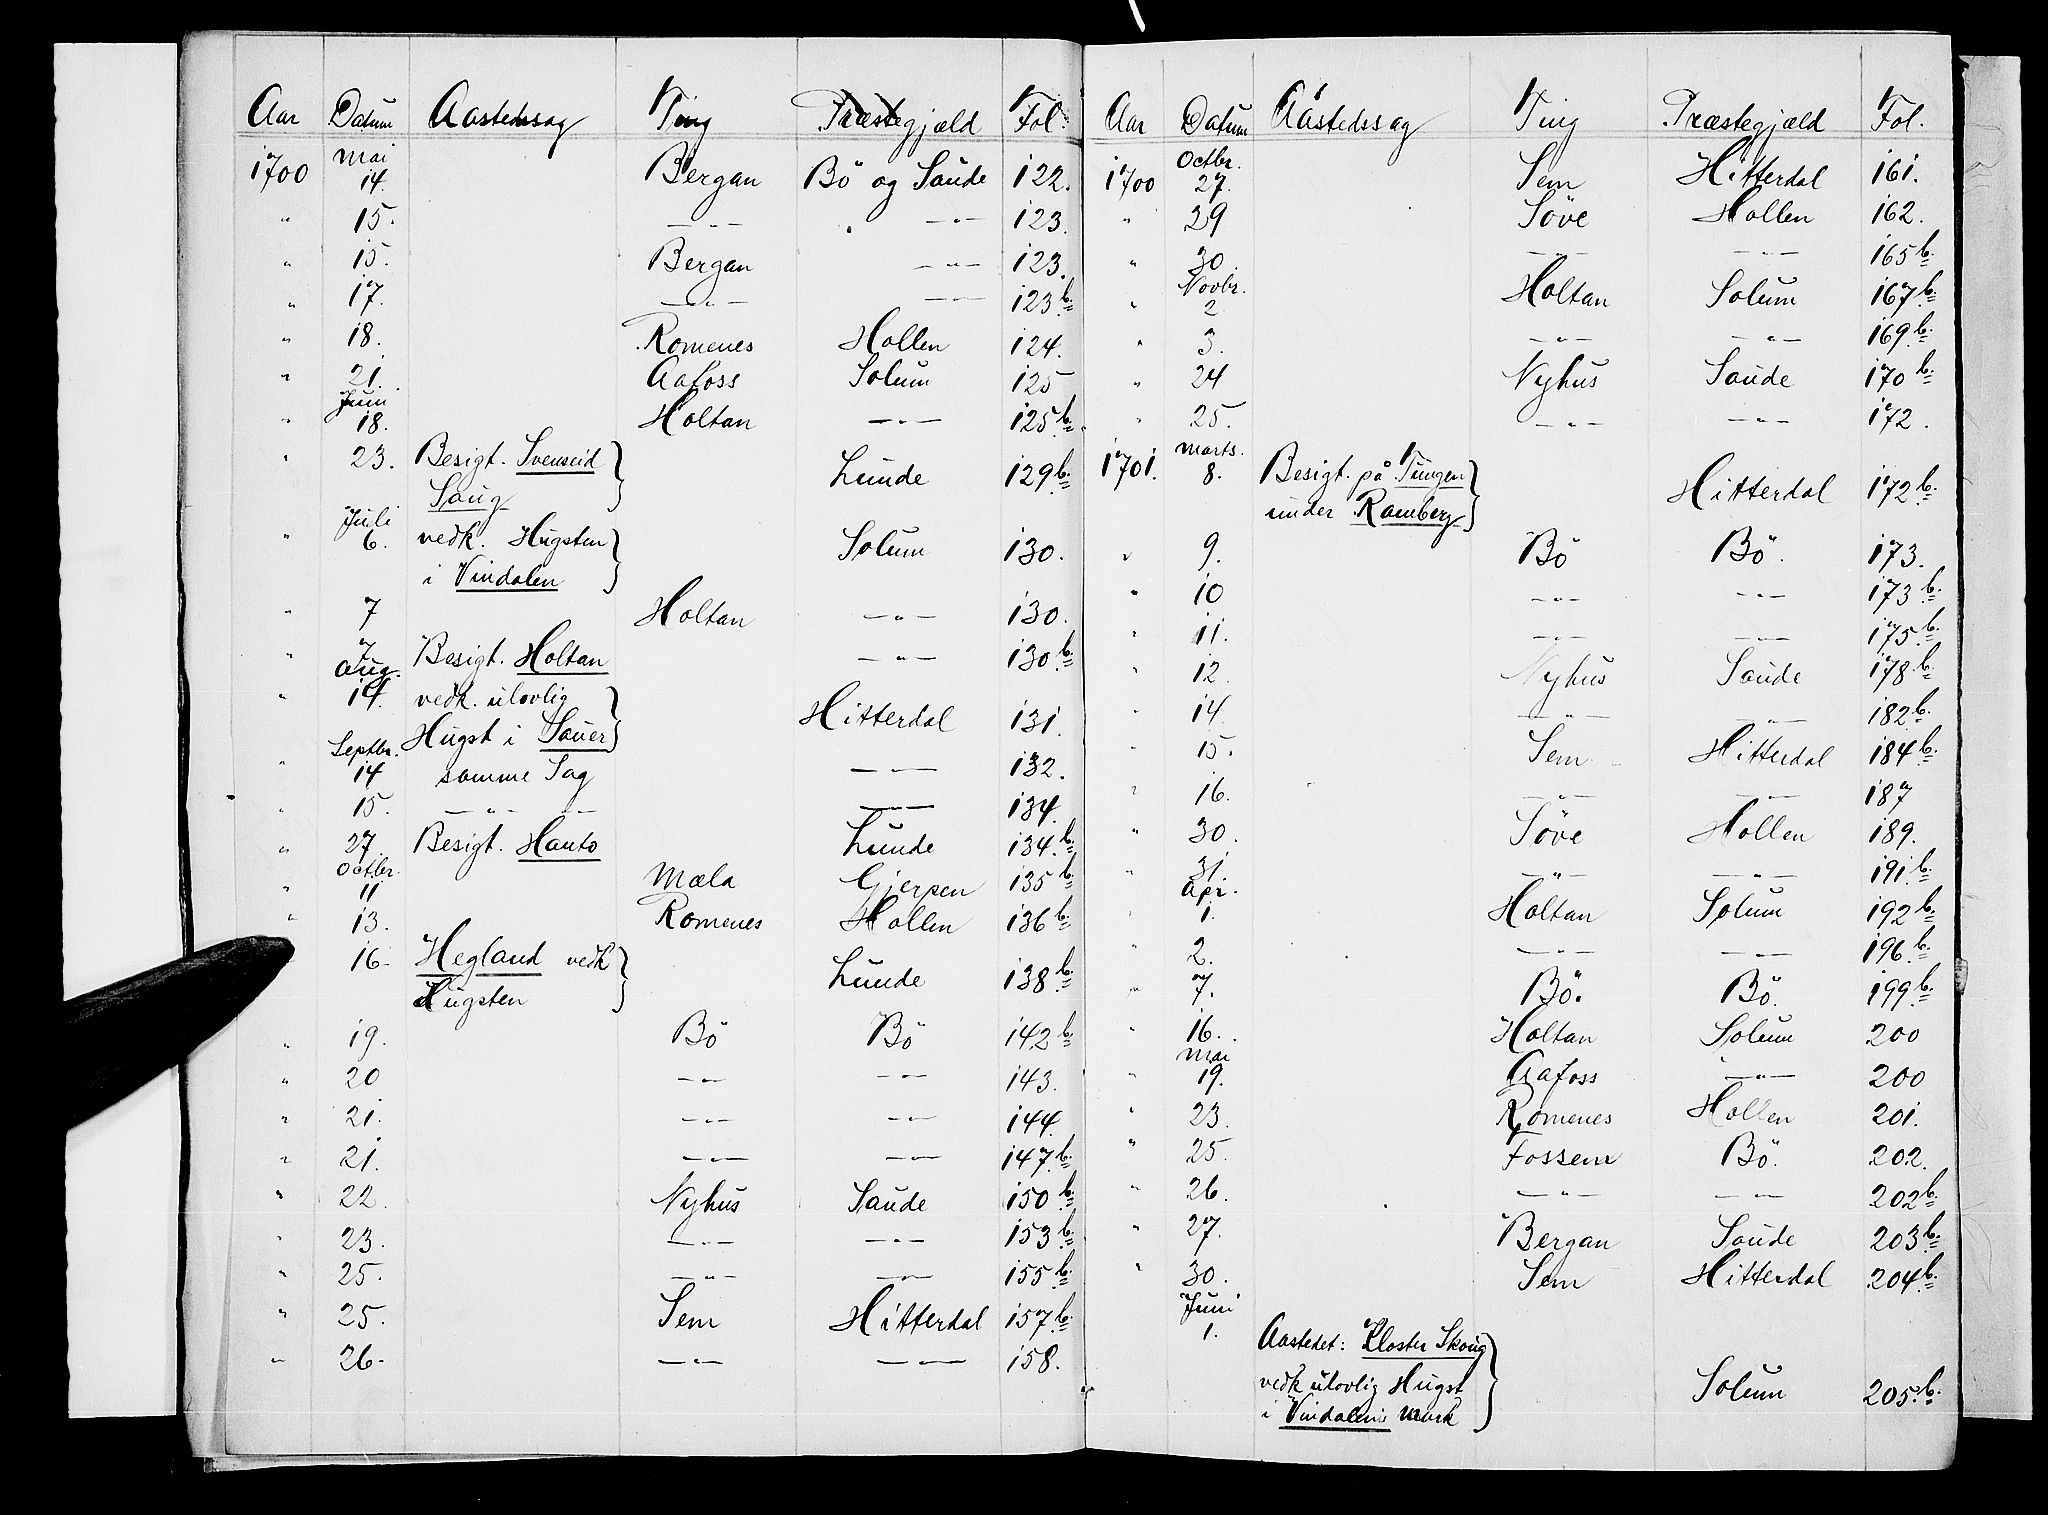 Aar Datum Aastedssag Ting Præstegjæld Fol.
1700 Mai 14. Bergan Bö og Saude 122.
" 15. —"— —"— 123.
" 15. Bergan —"— 123.
" 17. —"— —"— 123 b.
" 18. Romenes Hollen 124.
" 21. Aafoss Solum 125
" Juni 18. Holtan —"— 125 b.
" 23. Besigt. Svenseid Lunde 129 b.
Saug
" Juli 6. vedk. Hugsten Solum 130.
i Vindalen
" 7 Holtan —"— 130.
" 7. Besigt. Holtan —"— 130 b.
" Aug. 14. vedk. ulovlig
Hugst i Sauer Hitterdal 131.
" Septbr. 14 samme Sag —"— 132.
" 15. —"— —"— 134.
" 27. Besigt. Hauto Lunde 134. b.
" Octbr. 11 Mæla Gjerpen 135 b.
" 13. Romenes Hollen 136 b.
" 16. Hegland vedk Lunde 138 b.
Hugsten
" 19. Bö Bö 142 b.
" 20 —"— —"— 143.
" 21. —"— —"— 144
" 21. —"— —"— 147 b.
" 22. Nyhus Saude 150 b.
" 23. —"— —"— 153 b.
" 25. —"— —"— 155 b.
" 25. Sem Hitterdal 157 b.
" 26. —"— —"— 158.
Aar Datum Aastedssag Ting Præstegjæld Fol.
1700 Octbr. 27. Sem Hitterdal 161.
" 29 Söve Hollen 162.
" 30. —"— —"— 165 b.
" Novbr. 2 Holtan Solum 167 b.
" 3. —"— —"— 169 b.
" 24 Nyhus Saude 170 b.
" 25. —"— —"— 172.
1701. Marts. 8. Besigt. på Tungen Hitterdal 172 b.
under Ramberg
" 9. Bö Bö. 173.
" 10 —"— —"— 173 b.
" 11. —"— —"— 175 b.
" 12. Nyhus Saude 178 b.
" 14. —"— —"— 182 b.
" 15. Sem Hitterdal 184 b.
" 16. —"— —"— 187
" 30. Söve Hollen 189.
" 31. —"— —"— 191 b.
" Apr. 1. Holtan Solum 192 b.
" 2. —"— —"— 196 b.
" 7. Bö. Bö. 199 b.
" 16. Holtan Solum 200
" Mai 19. Aafoss —"— 200
" 23. Romenes Hollen 201.
" 25. Fossem Bö. 202.
" 26. —"— —"— 202 b.
" 27. Bergan Saude 203 b.
" 30. Sem Hitterdal 204 b.
Juni 1. Aastedet: Kloster Skoug
vedk ulovlig Hugst Solum 205. b.
i Vindalens Mark